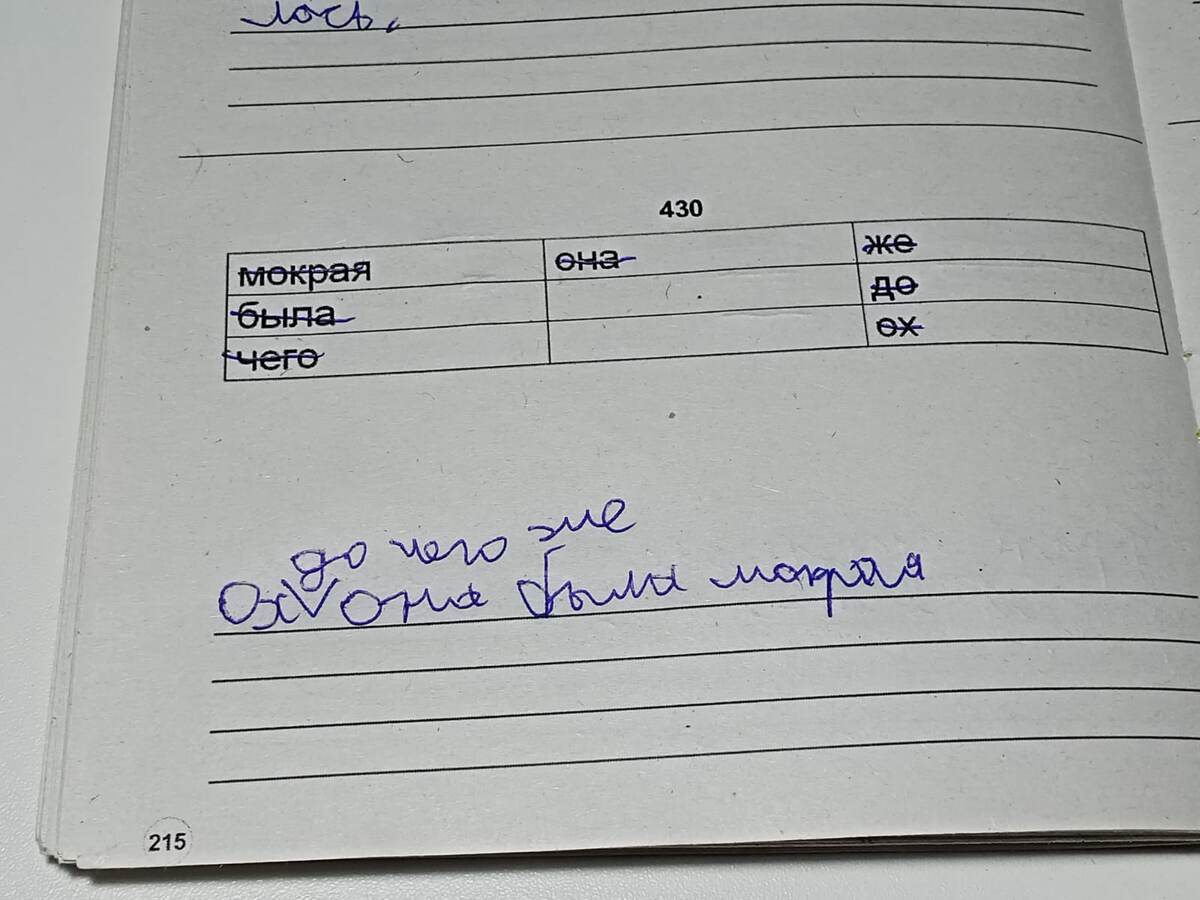 лось,
430
мокрая она же
была до
чего ох
до чего же
Ох V она была мокрая
215